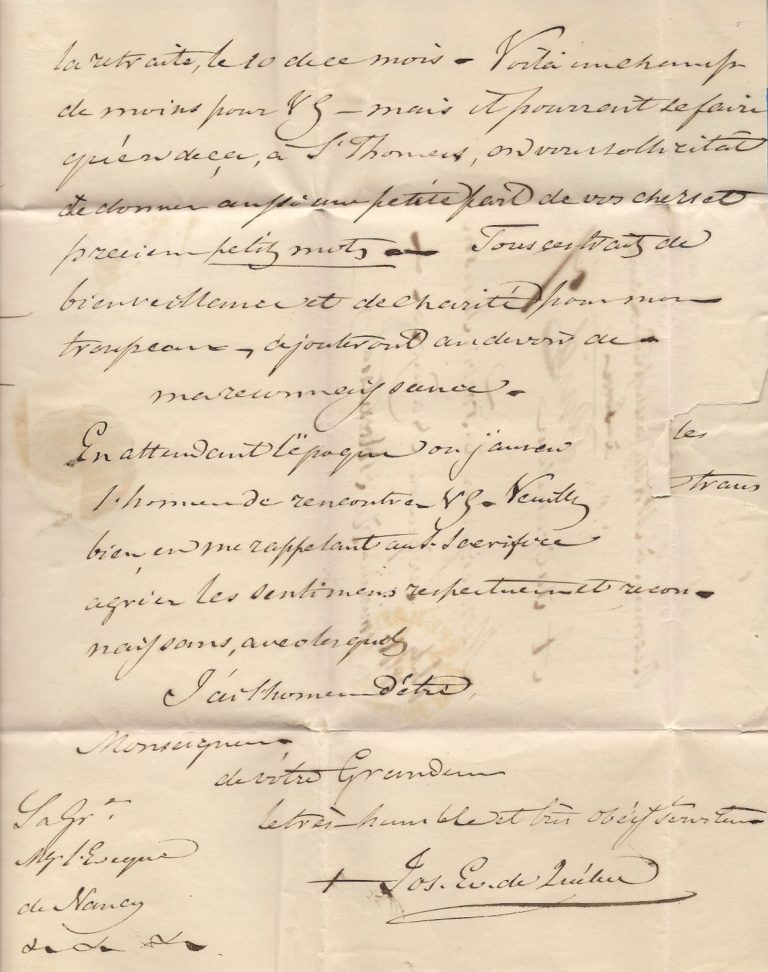 la retraite, le 10 de ce mois - Voilà un champ
de moins pour VG - mais il pourroit se faire
qu'en deça, à St Thomas, on vous sollicitât
de donner aussi une petite part de vos chers et
precieux petits mots - Tous ces traits de
bienveillance et de charité pour mon
troupeau, ajouteront au devoir de
ma reconnaissance -
En attendant l'époque ou j'aurai
l'honneur de rencontrer VG - Veuillez
bien en me rappelant au St Sacrifice
agréer les sentimens respectueux et recon-
naissans, avec lesquels
J'ai l'honneur d'être,
Monseigneur
de vôtre Grandeur
le très humble et très obéisst serviteur
+ Jos. Ev. de Québec
Sa Gr.
Mgr l'Evêque
de Nancy
&c &c &c
les
trans